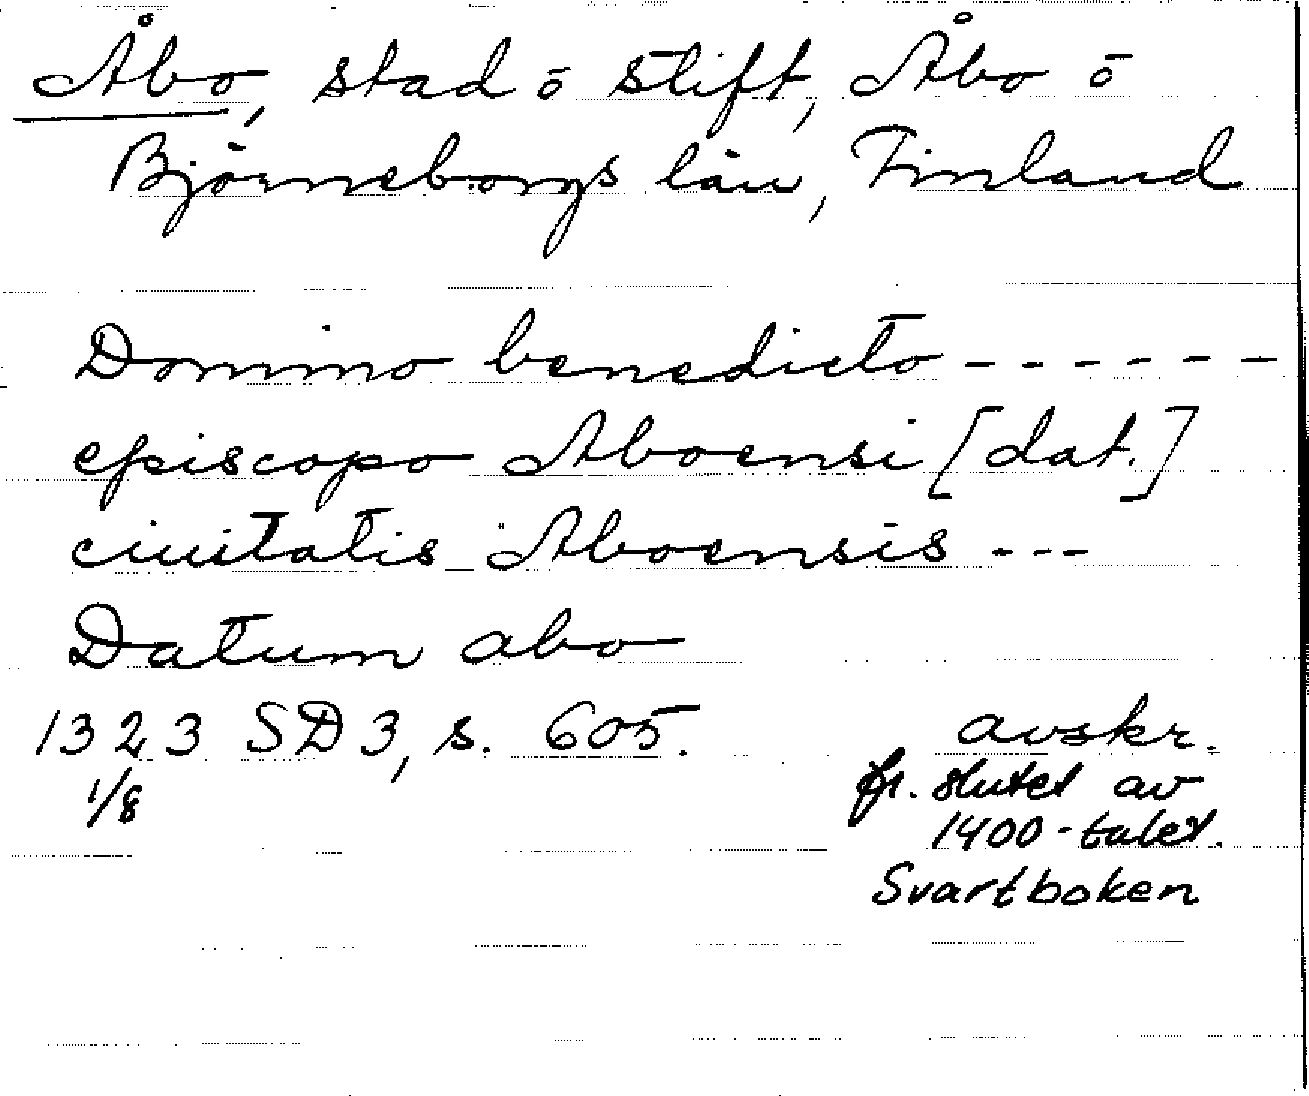 Åbo, stad ō stift, Åbo ō
Björneborgs län, Finland
Domino benedicto ------
episcopo Aboensi [dat.]
ciuitatis Aboensis ---
Datum abo
1323 SD 3, s. 605. avskr.
1/8 fr. slutet av
1400-talet.
Svartboken